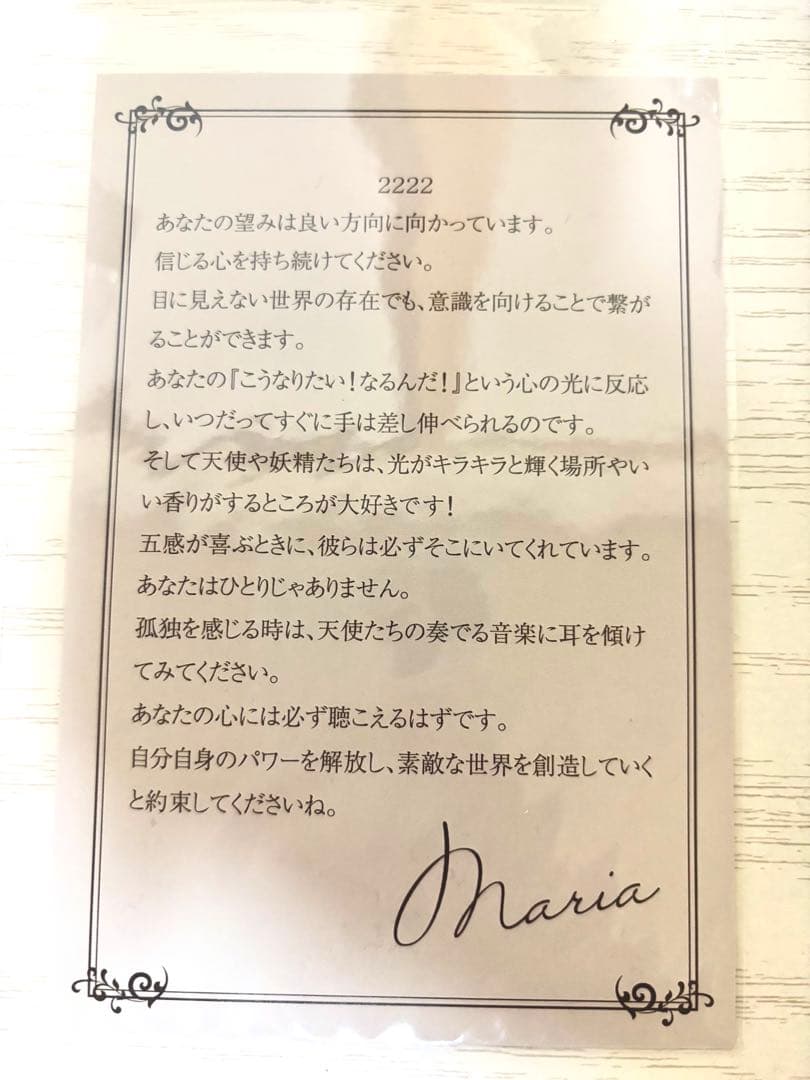 2222
あなたの望みは良い方向に向かっています。
信じる心を持ち続けてください。
目に見えない世界の存在でも、意識を向けることで繋が
ることができます。
あなたの『こうなりたい！なるんだ！』という心の光に反応
し、いつだってすぐに手は差し伸べられるのです。
そして天使や妖精たちは、光がキラキラと輝く場所やい
い香りがするところが大好きです！
五感が喜ぶときに、彼らは必ずそこにいてくれています。
あなたはひとりじゃありません。
孤独を感じる時は、天使たちの奏でる音楽に耳を傾け
てみてください。
あなたの心には必ず聴こえるはずです。
自分自身のパワーを解放し、素敵な世界を創造していく
と約束してくださいね。
Maria